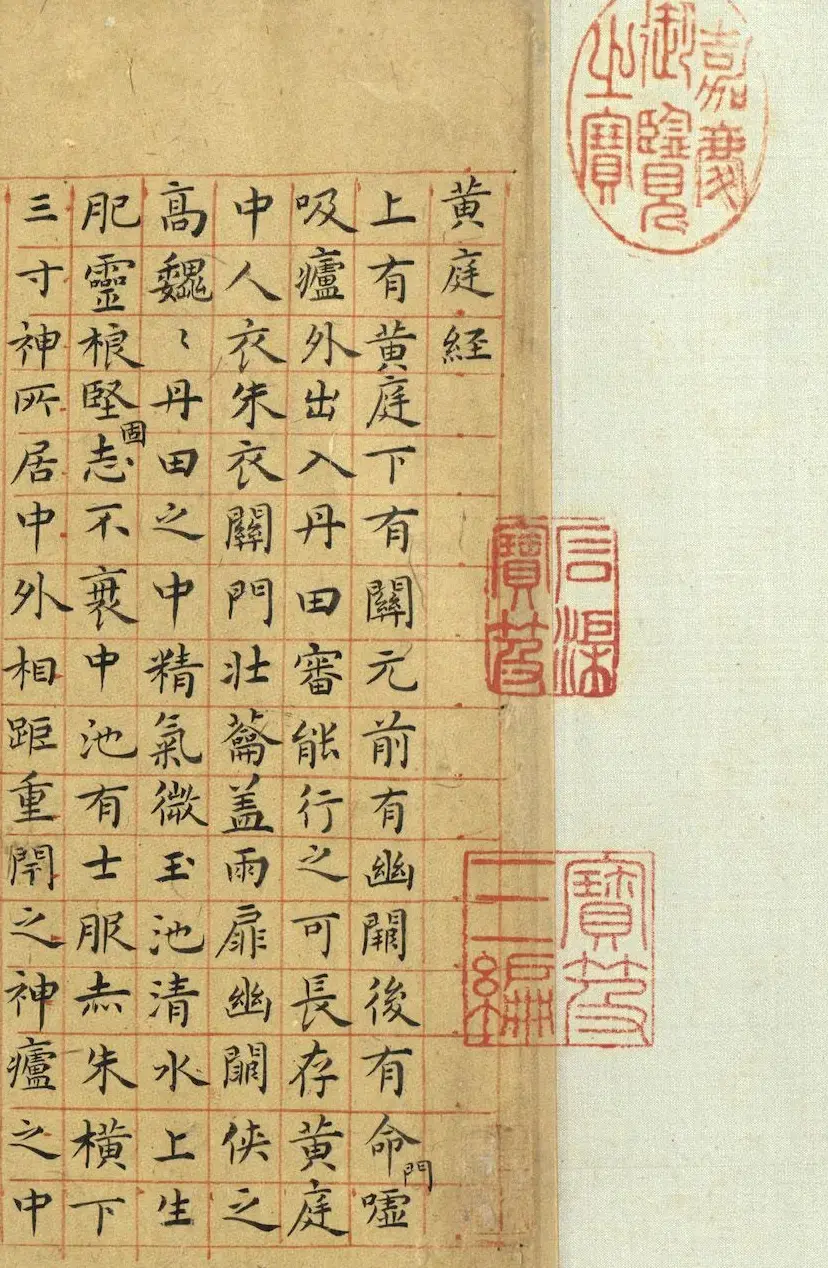 嘉慶
御覽
之寶
石渠
寶笈
寶笈
三編
黄庭經
上有黄庭下有關元前有幽闕後有命門噓
吸廬外出入丹田審能行之可長存黄庭
中人衣朱衣關門壯蘥盖兩扉幽闕俠之
高魏〻丹田之中精氣微玉池清水上生
肥靈根堅固志不衰中池有士服赤朱橫下
三寸神所居中外相距重閇之神廬之中